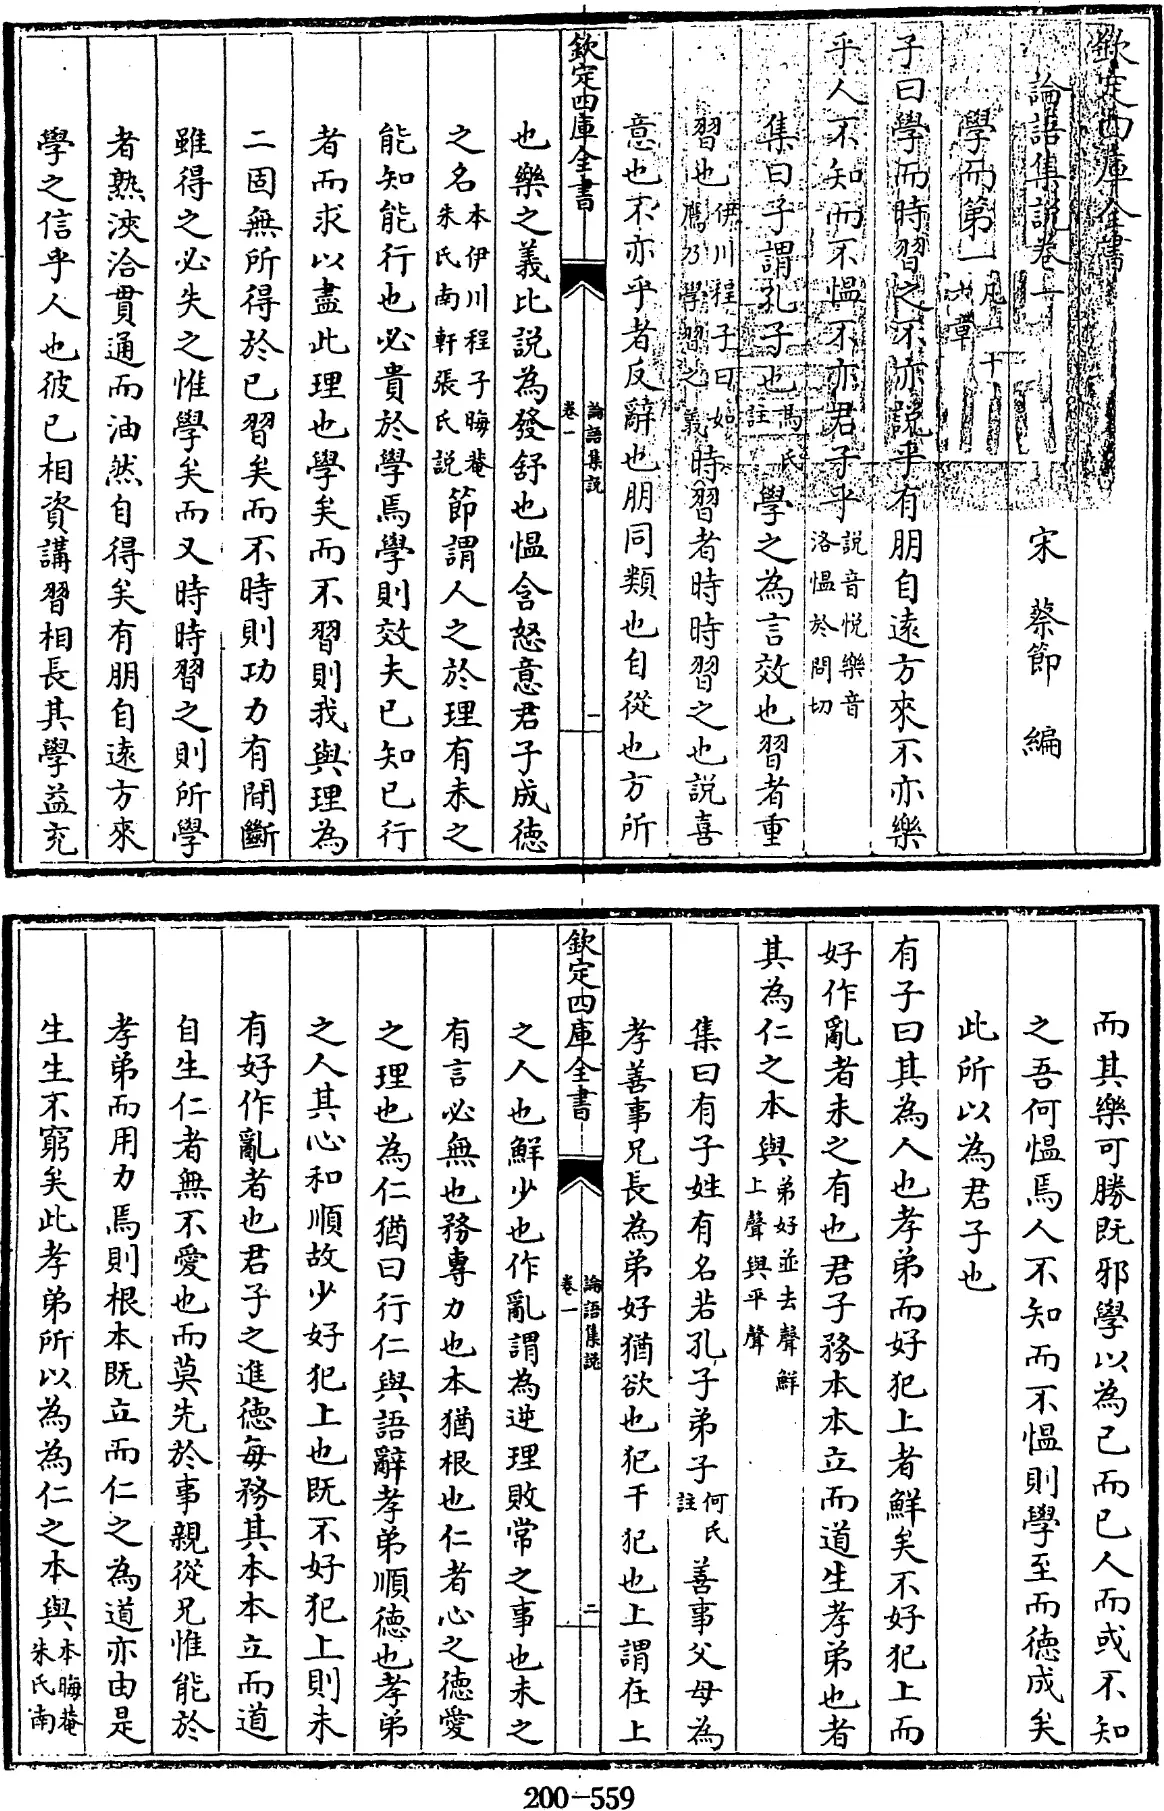 欽定四庫全書
論語集説卷一
宋 蔡節 編
學而第一凡一十六章
子曰學而時習之不亦説乎有朋自遠方來不亦樂
乎人不知而不愠不亦君子乎説音悦樂音洛愠於問切
集曰子謂孔子也馮氏註學之為言效也習者重
習也伊川程子曰如鷹乃學習之義時習者時時習之也説喜
意也不亦乎者反辭也朋同類也自從也方所
欽定四庫全書
論語集説
卷一
一
也樂之義比説為發舒也愠含怒意君子成徳
之名本伊川程子晦菴朱氏南軒張氏説節謂人之於理有未之
能知能行也必貴於學焉學則效夫已知已行
者而求以盡此理也學矣而不習則我與理為
二固無所得於已習矣而不時則功力有間斷
雖得之必失之惟學矣而又時時習之則所學
者熟浹洽貫通而油然自得矣有朋自遠方來
學之信乎人也彼已相資講習相長其學益充
而其樂可勝既邪學以為己而已人而或不知
之吾何愠焉人不知而不愠則學至而徳成矣
此所以為君子也
有子曰其為人也孝弟而好犯上者鮮矣不好犯上而
好作亂者未之有也君子務本本立而道生孝弟也者
其為仁之本與弟好並去聲鮮上聲與平聲
集曰有子姓有名若孔子弟子何氏註善事父母為
孝善事兄長為弟好猶欲也犯干犯也上謂在上
欽定四庫全書
論語集説
卷一
二
之人也鮮少也作亂謂為逆理敗常之事也未之
有言必無也務專力也本猶根也仁者心之徳愛
之理也為仁猶曰行仁與語辭孝弟順徳也孝弟
之人其心和順故少好犯上也既不好犯上則未
有好作亂者也君子之進徳每務其本本立而道
自生仁者無不愛也而莫先於事親從兄惟能於
孝弟而用力焉則根本既立而仁之為道亦由是
生生不窮矣此孝弟所以為為仁之本與本晦菴朱氏南
200-559